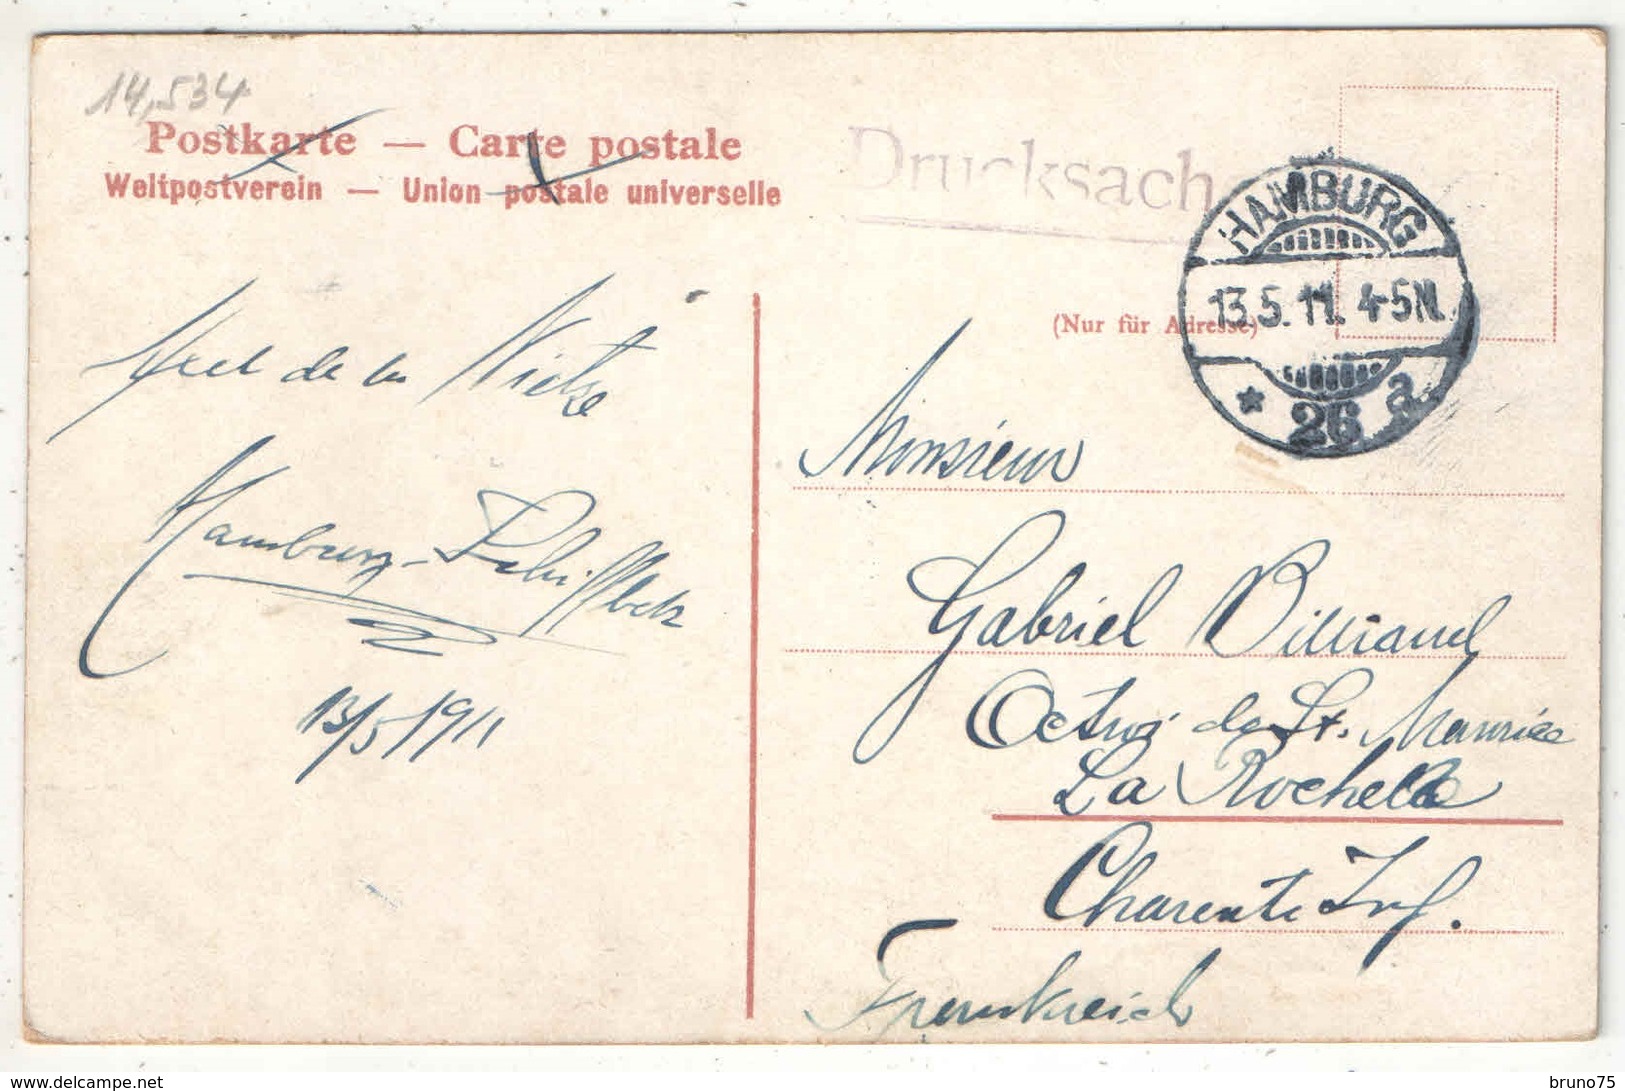 14,534
Postkarte — Carte postale
Weltpostverein — Union postale universelle
Drucksache
HAMBURG
13.5.11. 4-5N.
* 26 a
(Nur für Adresse)
Axel de la
Hamburg-Schiffbek
13/5 1911
Monsieur
Gabriel
Octroi de St. Maurice
La Rochelle
Charente Inf.
Frankreich
delcampe.net
bruno75